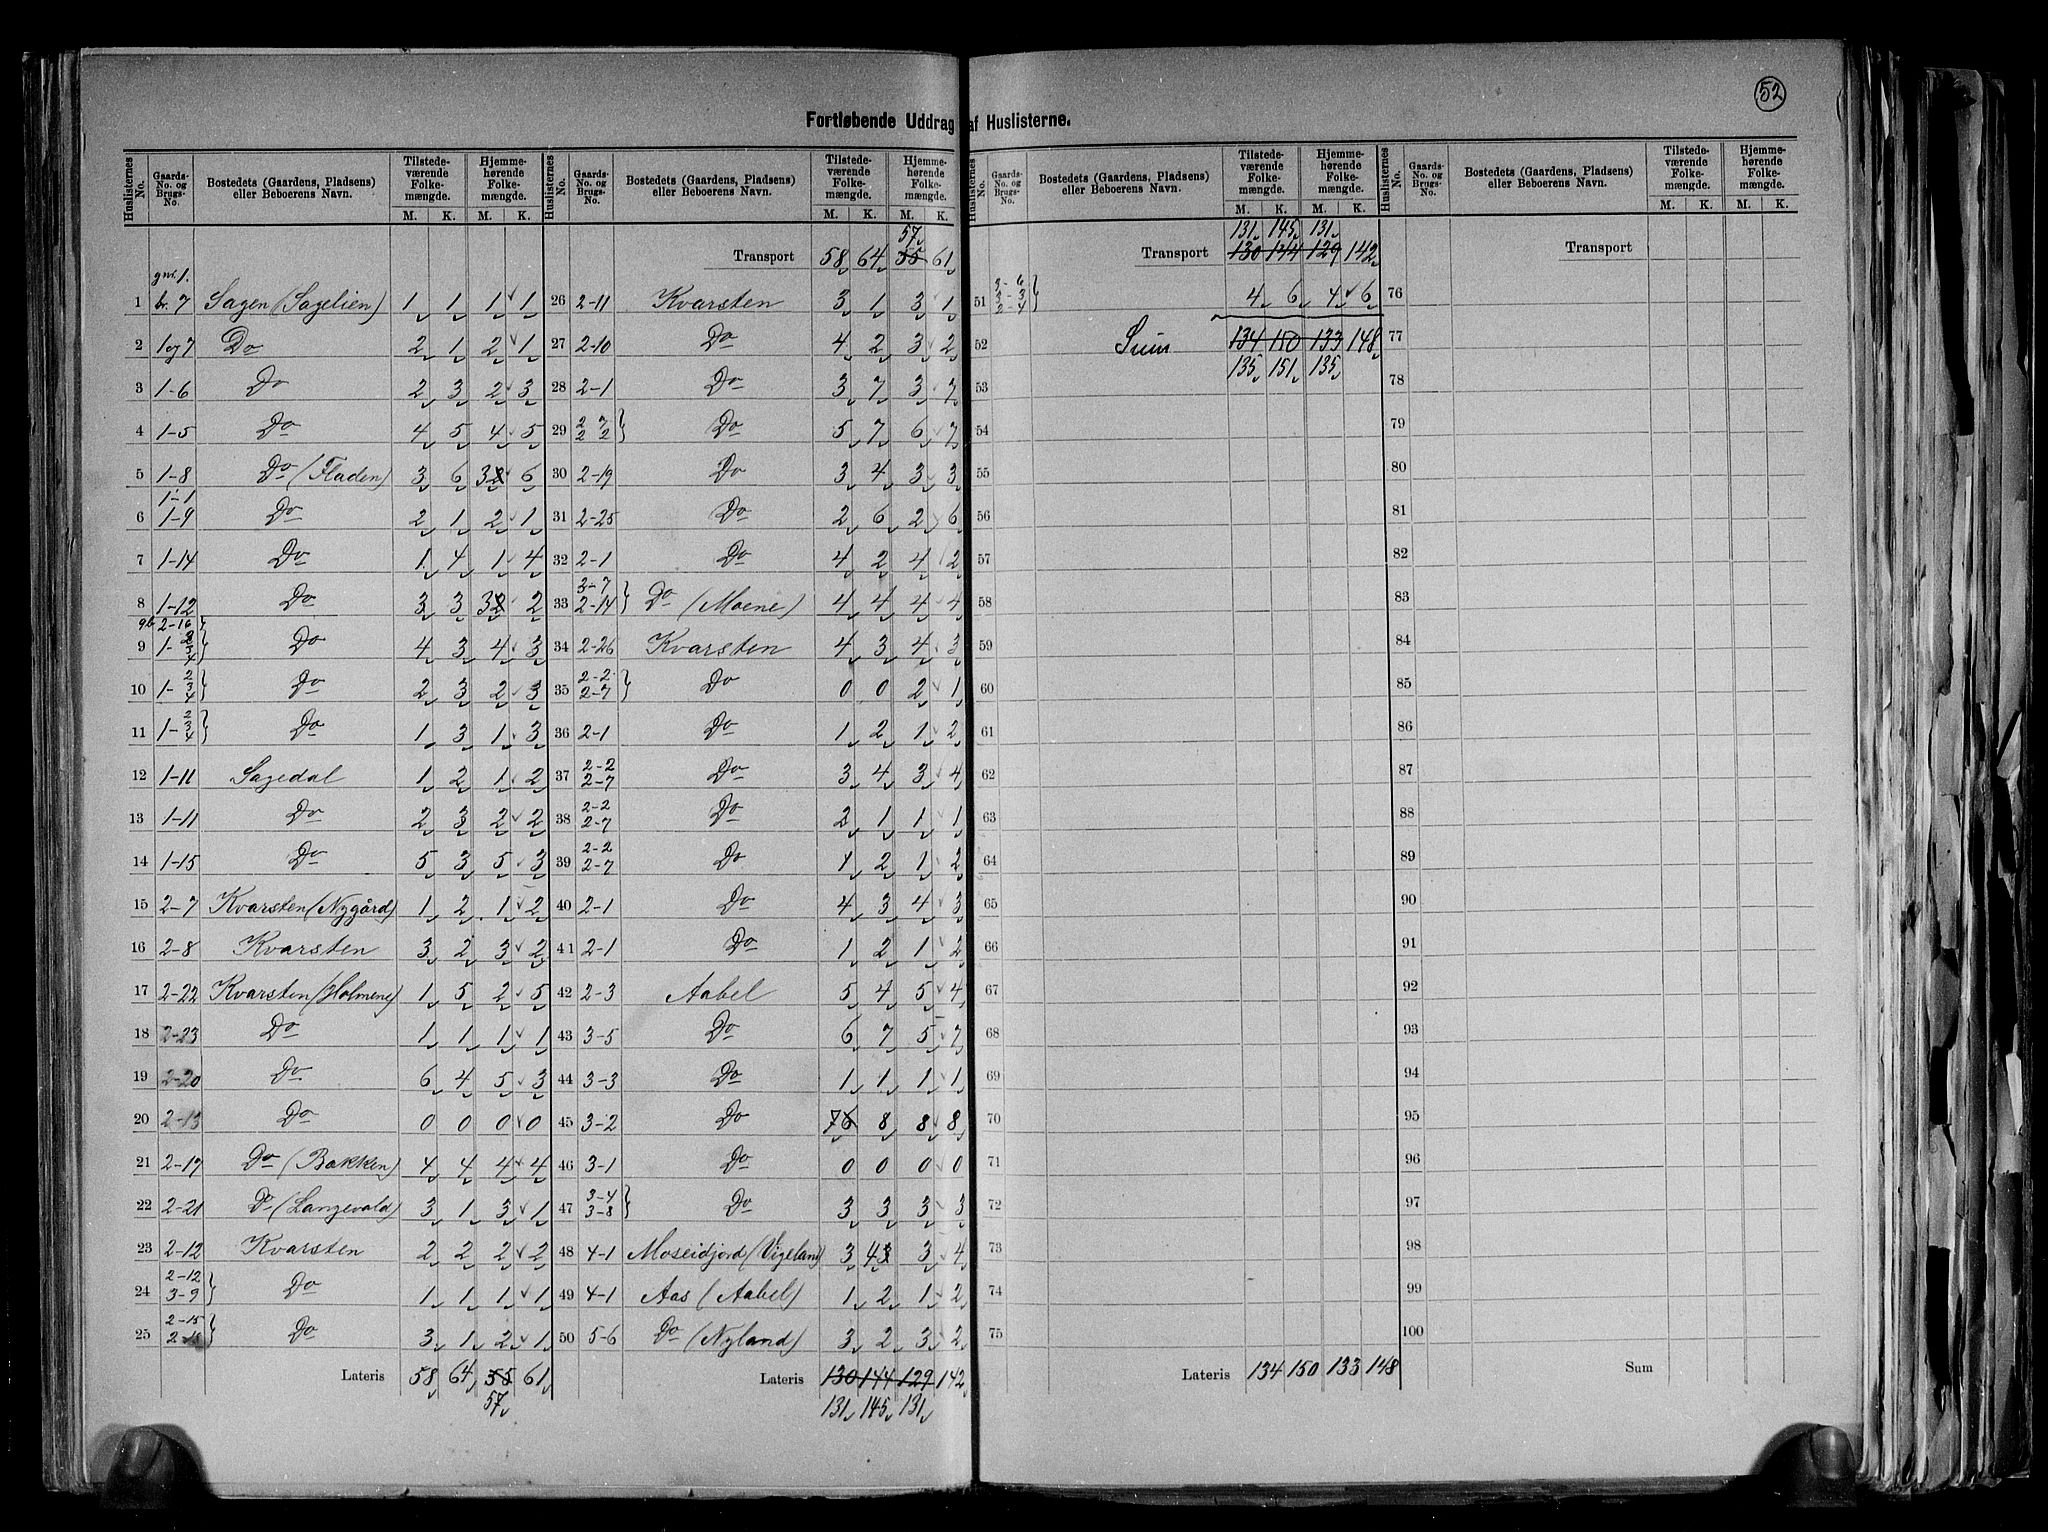 52
Fortløbende Uddrag af Huslisterne.
Huslisternes No. Gaards-No. og Brugs-No. Bostedets (Gaardens, Pladsens) eller Beboerens Navn. Tilstedeværende Folkemængde. M. K. Hjemmehørende Folkemængde. M. K.
Huslisternes No. Gaards-No. og Brugs-No. Bostedets (Gaardens, Pladsens) eller Beboerens Navn. Tilstedeværende Folkemængde. M. K. Hjemmehørende Folkemængde. M. K.
gnr. 1.
1 br. 7 Sagen (Sagelien) 1 1 1 1
2 1 og 7 Do 2 1 2 1
3 1-6 Do 2 3 2 3
4 1-5 Do 4 5 4 5
5 1-8 Do (Fladen) 3 6 3 2 6
1-1
6 1-9 Do 2 1 2 1
7 1-14 Do 1 4 1 4
8 1-12 Do 3 3 3 2 2
9b 2-16
9 1-2 3 4 Do 4 3 4 3
10 1-2 3 4 Do 2 3 2 3
11 1-2 3 4 Do 1 3 1 3
12 1-11 Sagedal 1 2 1 2
13 1-11 Do 2 3 2 2
14 1-15 Do 5 3 5 3
15 2-7 Kvarsten (Nygård) 1 2 1 2
16 2-8 Kvarsten 3 2 3 2
17 2-22 Kvarsten (Holmene) 1 5 2 5
18 2-23 Do 1 1 1 1
19 2-20 Do 6 4 5 3
20 2-13 Do 0 0 0 0
21 2-17 Do (Bakken) 4 4 4 4
22 2-21 Do (Langevald) 3 1 3 1
23 2-12 Kvarsten 2 2 2 2
24 2-12 3-9 Do 1 1 1 1
25 2-15 Do 3 1 2 1
Lateris 58 64 55 61
57
57
Transport 58 64 55 61
26 2-11 Kvarsten 3 1 3 1
27 2-10 Do 4 2 3 2
28 2-1 Do 3 7 3 7
29 2 7 2 2 Do 5 7 6 7
30 2-19 Do 3 4 3 3
31 2-25 Do 2 6 2 6
32 2-1 Do 4 2 4 2
33 2-7 2-14 Do (Moene) 4 4 4 4
34 2-26 Kvarsten 4 3 4 3
35 2-2 2-7 Do 0 0 2 1
36 2-1 Do 1 2 1 2
37 2-2 2-7 Do 3 4 3 4
38 2-2 2-7 Do 2 1 1 1
39 2-2 2-7 Do 1 2 1 2
40 2-1 Do 4 3 4 3
41 2-1 Do 1 2 1 2
42 2-3 Aabel 5 4 5 4
43 3-5 Do 6 7 5 7
44 3-3 Do 1 1 1 1
45 3-2 Do 7 6 8 8 8
46 3-1 Do 0 0 0 0
47 3-4 3-8 Do 3 3 3 3
48 4-1 Moseidjord (Vigeland) 3 4 3 3 4
49 4-1 Aas (Aabel) 1 2 1 2
50 5-6 Do (Nyland) 3 2 3 2
Lateris 130 144 129 142
131 145 131
Huslisternes No. Gaards-No. og Brugs-No. Bostedets (Gaardens, Pladsens) eller Beboerens Navn. Tilstedeværende Folkemængde. M. K. Hjemmehørende Folkemængde. M. K.
131 145 131
Transport 130 144 129 142
51 2-6 3-3 2-4 4 6 4 6
52 Sum 134 150 133 148
135 151 135
53
54
55
56
57
58
59
60
61
62
63
64
65
66
67
68
69
70
71
72
73
74
75
Lateris 134 150 133 148
Huslisternes No. Gaards-No. og Brugs-No. Bostedets (Gaardens, Pladsens) eller Beboerens Navn. Tilstedeværende Folkemængde. M. K. Hjemmehørende Folkemængde. M. K.
Transport
76
77
78
79
80
81
82
83
84
85
86
87
88
89
90
91
92
93
94
95
96
97
98
99
100
Sum